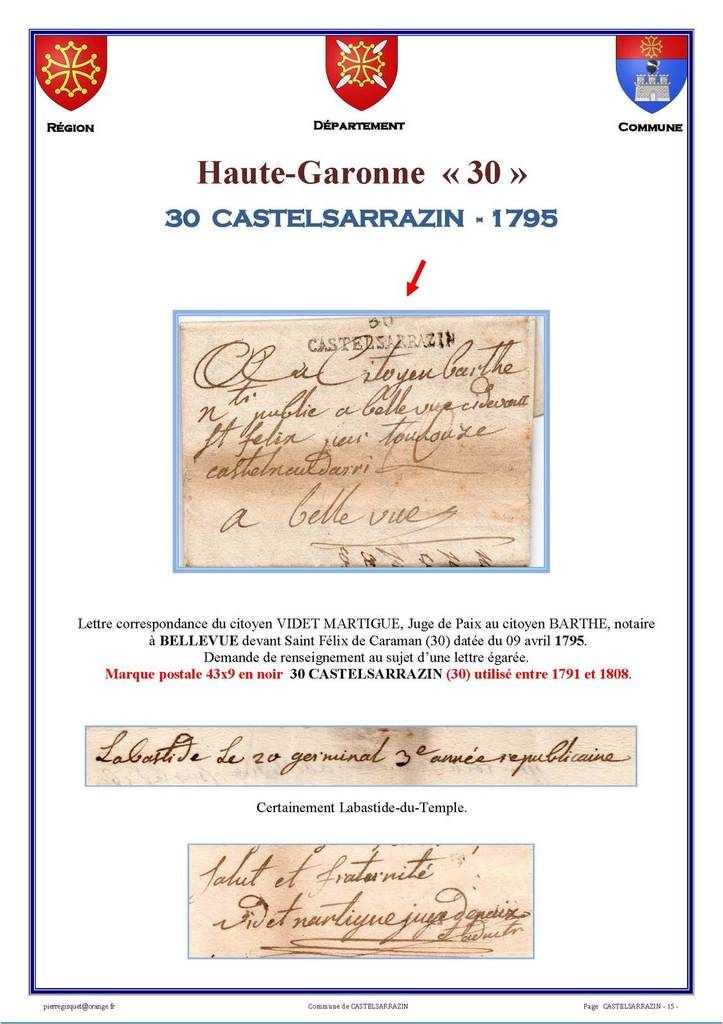 RÉGION
DÉPARTEMENT
COMMUNE
Haute-Garonne « 30 »
30 CASTELSARRAZIN - 1795
30
CASTELSARRAZIN
au Citoyen barthe
public a bellevue cidevant
st felix par toulouze
castelneuldarri
a belle vue
Lettre correspondance du citoyen VIDET MARTIGUE, Juge de Paix au citoyen BARTHE, notaire
à BELLEVUE devant Saint Félix de Caraman (30) datée du 09 avril 1795.
Demande de renseignement au sujet d’une lettre égarée.
Marque postale 43x9 en noir 30 CASTELSARRAZIN (30) utilisé entre 1791 et 1808.
Labastide Le 20 germinal 3e année republicaine
Certainement Labastide-du-Temple.
Salut et fraternité
Videt martigue juge depaix
pierregisquet@orange.fr
Commune de CASTELSARRAZIN
Page CASTELSARRAZIN - 15 -